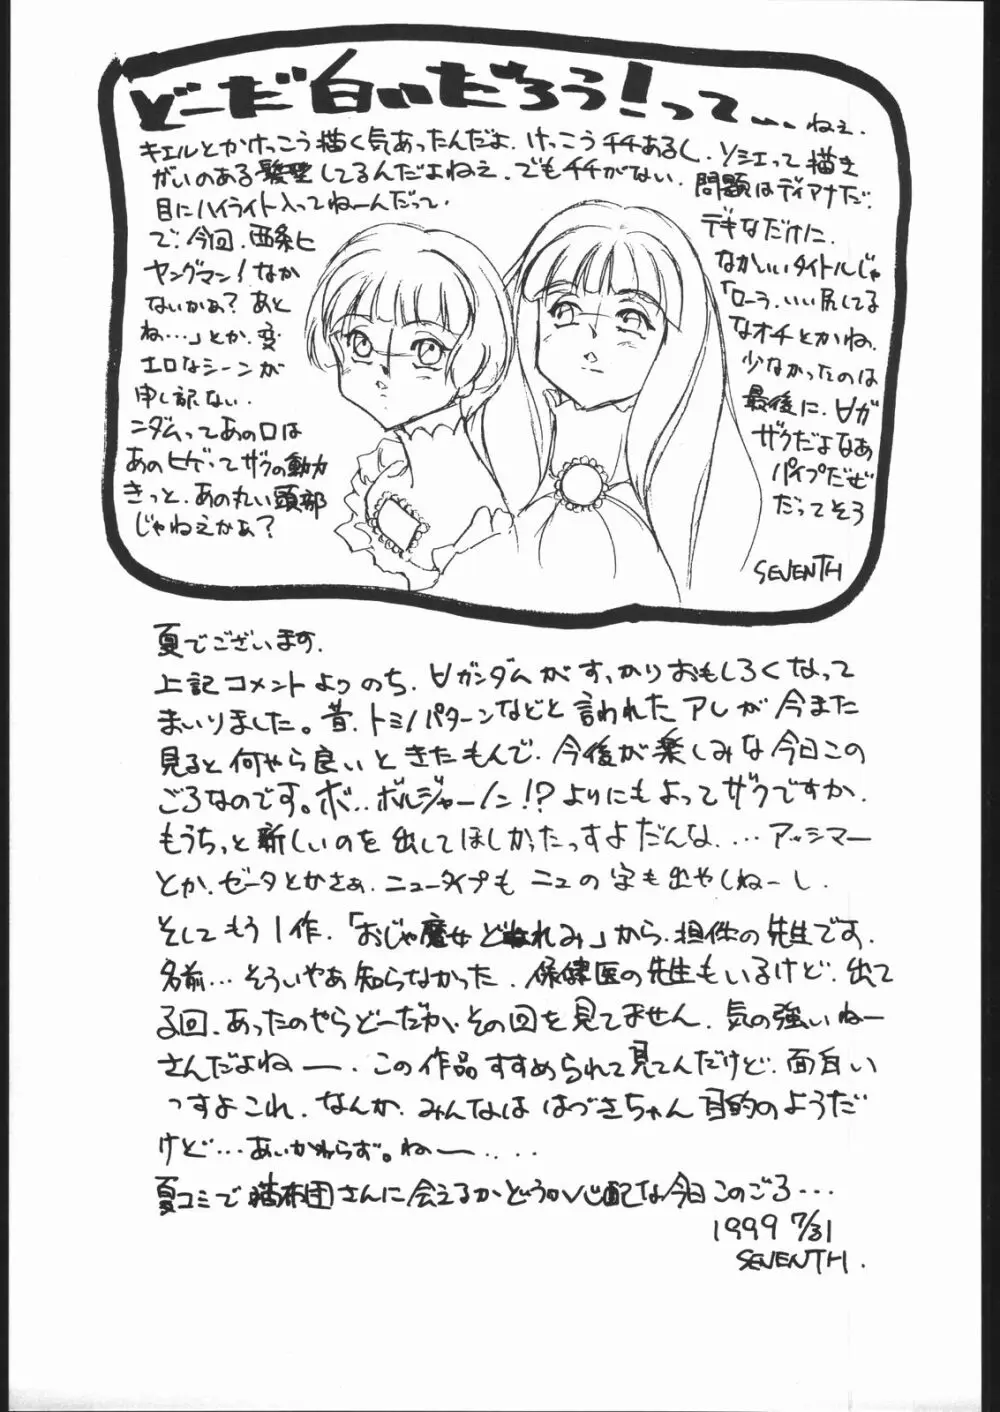 どーだ白いだろう!って... ねぇ.
キエルとかけっこう描く気あったんだよ. けっこうチチあるし. ソシエって描き
がいのある髪型してるんだよねぇ. でもチチがない. 問題はディアナだ.
目にハイライト入ってねーんだって.
で、今回、西条ヒ デキなだけに.
ヤングマン!なか なかいいタイトルじゃ
ないかぁ?あと 「ローラ、いい尻してる
ね...」とか、変 なオチとかね.
エロなシーンが 少なかったのは
申し訳ない. 最後に、∀ガ
ンダムってあの口は ザクだよなあ
あのヒゲってザクの動力 パイプだぜ
きっと、あの丸い頭部 だってそう
じゃねえかぁ?
SEVENTH
夏でございます.
上記コメントよりのち、∀ガンダムがすっかりおもしろくなって
まいりました。昔、トミノパターンなどと言われたアレが今また
見ると何やら良いときたもんで、今後が楽しみな今日この
ごろなのです。ボ..ボルジャーノン!?よりにもよってザクですか.
もうちっと新しいのを出してほしかったっすよだんな....アッシマー
とか、ゼータとかさぁ. ニュータイプもニュの字も出やしねーし.
そしてもう1作、「おじゃ魔女どれみ」から、担任の先生です.
名前...そういやあ知らなかった. 保健医の先生もいるけど、出て
る回、あったのやらどーだか、その回を見てません. 気の強いねー
さんだよねー. この作品すすめられて見てんだけど、面白い
っすよこれ. なんか、みんなははづきちゃん目的のようだ
けど...あいかわらず。ねー....
夏コミで猫布団さんに会えるかどうか心配な今日このごろ...
1999 7/31
SEVENTH.